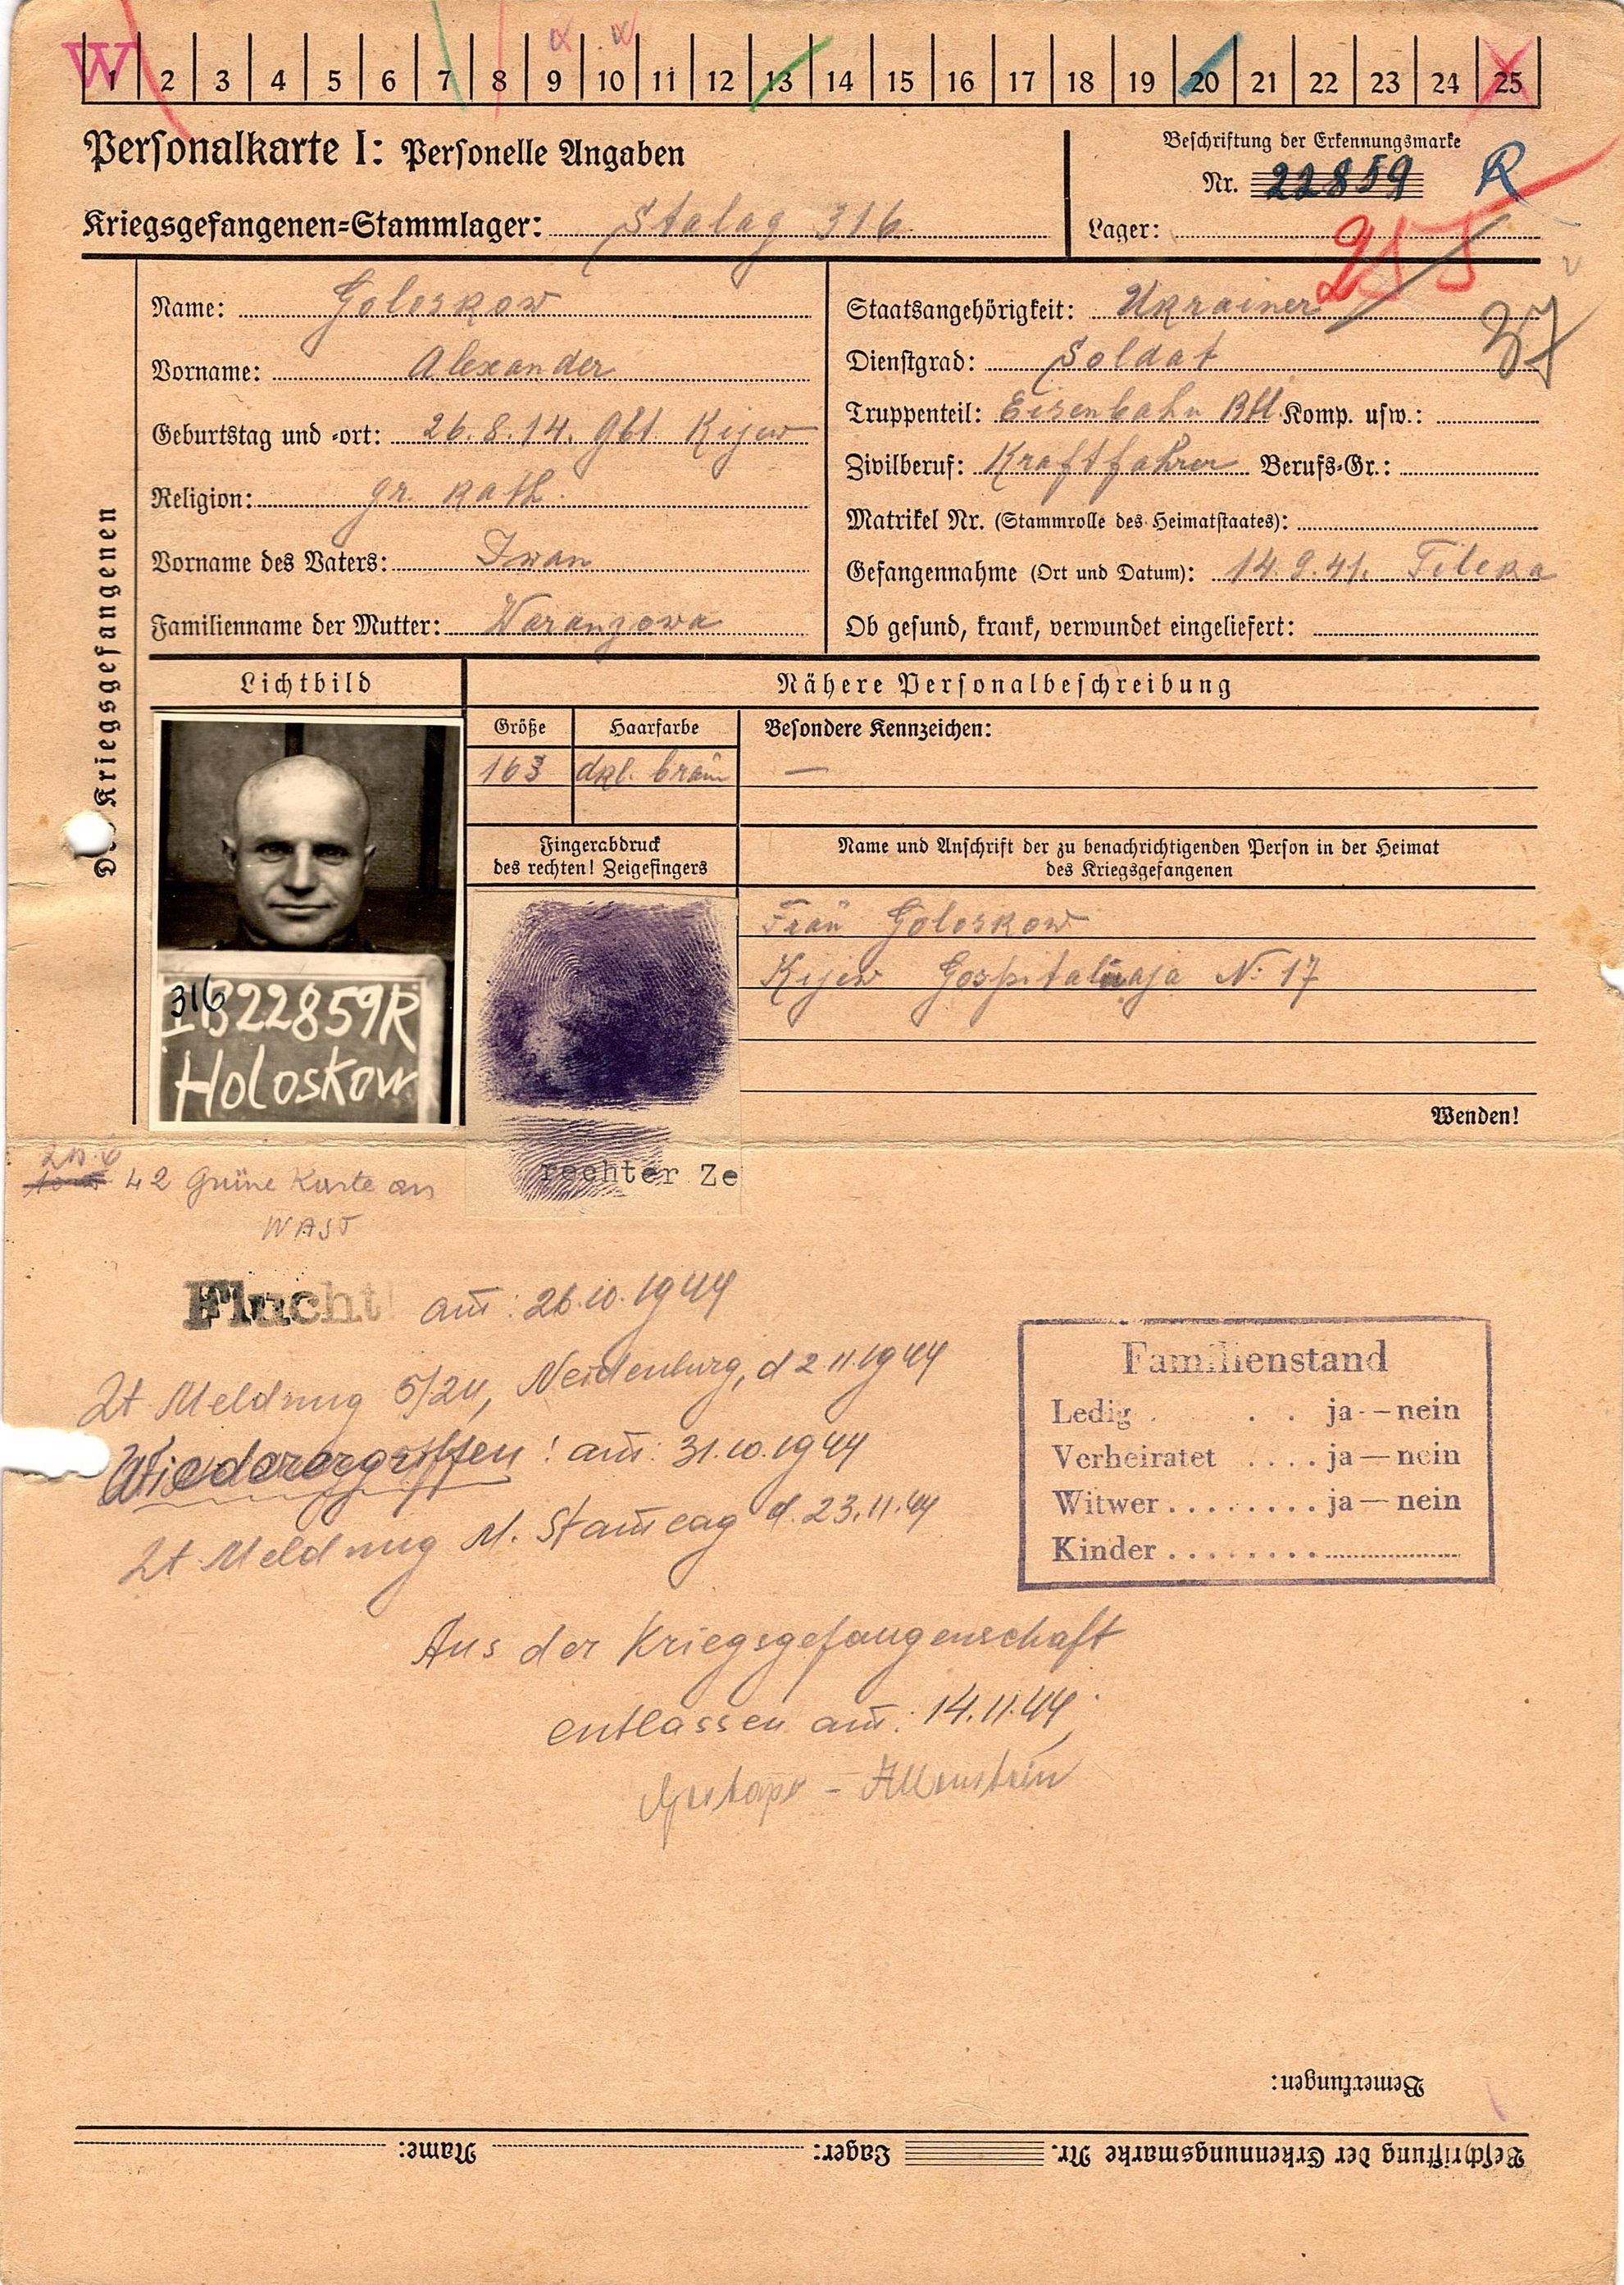 W
1 2 3 4 5 6 7 8 9 10 11 12 13 14 15 16 17 18 19 20 21 22 23 24 25
Personalkarte I: Personelle Angaben
Beschriftung der Erkennungsmarke
Nr. 22859 R
Kriegsgefangenen=Stammlager: Stalag 316
Lager:
Des Kriegsgefangenen
Name: Goloskow
Vorname: Alexander
Geburtstag und -ort: 26.8.14. Gbt. Kijew
Religion: gr. kath.
Vorname des Vaters: Iwan
Familienname der Mutter: Waranzowa
Staatsangehörigkeit: Ukrainer
37
Dienstgrad: Soldat
Truppenteil: Eisenbahn Btl. Komp. usw.:
Zivilberuf: Kraftfahrer Berufs=Gr.:
Matrikel Nr. (Stammrolle des Heimatstaates):
Gefangennahme (Ort und Datum): 14.9.41.
Ob gesund, krank, verwundet eingeliefert:
Lichtbild
Nähere Personalbeschreibung
Größe Haarfarbe Besondere Kennzeichen:
163 dkl. braun —
Fingerabdruck
des rechten! Zeigefingers
Name und Anschrift der zu benachrichtigenden Person in der Heimat
des Kriegsgefangenen
Frau Goloskow
Kijew Gospitalnaja No 17
316
IB22859R
Holoskow
rechter Ze
Wenden!
42 Grüne Karte an
WASt
Flucht! am: 26.10.1944
Lt Meldung 5/24, Neidenburg, d 2 11.1944
Wiederergriffen! am: 31.10.1944
Lt Meldung M. Stammlag d. 23.11.44
Familienstand
Ledig . . . ja - nein
Verheiratet . . . . ja — nein
Witwer . . . . . . . . ja — nein
Kinder . . . . . . . .
Aus der Kriegsgefangenschaft
entlassen am: 14.11.44,
Gestapo - Allenstein
Bemerkungen:
Beschriftung der Erkennungsmarke Nr. Lager: Name: